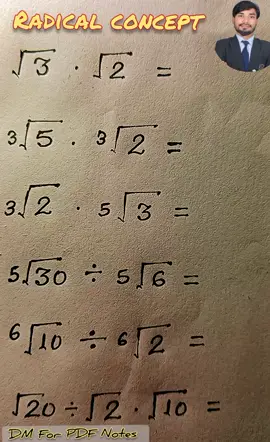 RADICAL CONCEPT
√3 · √2 =
³√5 · ³√2 =
³√2 · ⁵√3 =
⁵√30 ÷ ⁵√6 =
⁶√10 ÷ ⁶√2 =
√20 ÷ √2 · √10 =
DM For PDF Notes